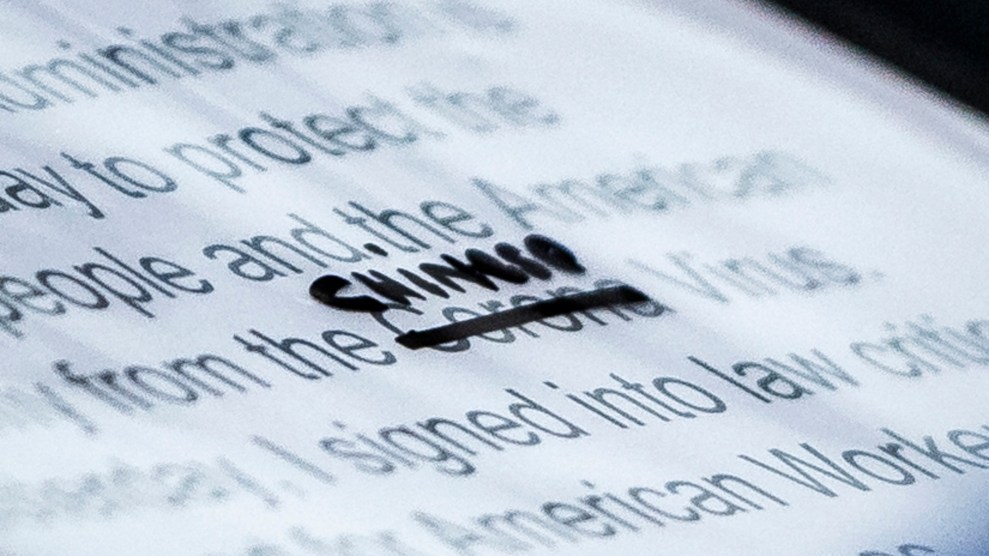 ministration
day to protect the
people and the American
CHINESE
y from the Corona Virus.
nesday, I signed into law critic
for American Worke